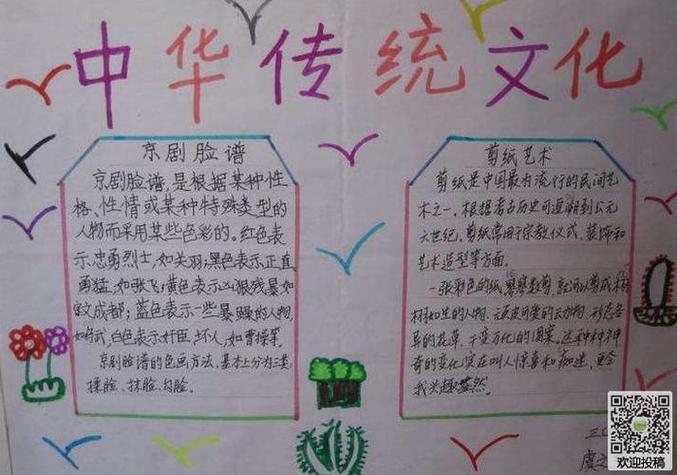 中华传统文化
京剧脸谱
京剧脸谱,是根据某种性
格、性情或某种特殊类型的
人物而采用某些色彩的。红色表
示忠勇烈士,如关羽;黑色表示正直,
勇猛,如张飞;黄色表示凶狠残暴如
宇文成都;蓝色表示一些暴躁的人物,
白色表示奸臣,坏人,如曹操等。
京剧脸谱的色画方法,基本上分为三类:
揉脸、抹脸、勾脸。
剪纸艺术
剪纸是中国最为流行的民间艺
术之一。根据考古历史可追溯到公元
六世纪。剪纸常用于宗教仪式、装饰和
艺术造型等方面。
一张彩色的纸,寥寥数剪,就可以剪成栩
栩如生的人物、活泼可爱的动物、形态各
异的花草、千变万化的图案。这种种神
奇的变化,实在叫人惊喜和痴迷,更令
我兴趣盎然。
三(
虞
欢迎投稿